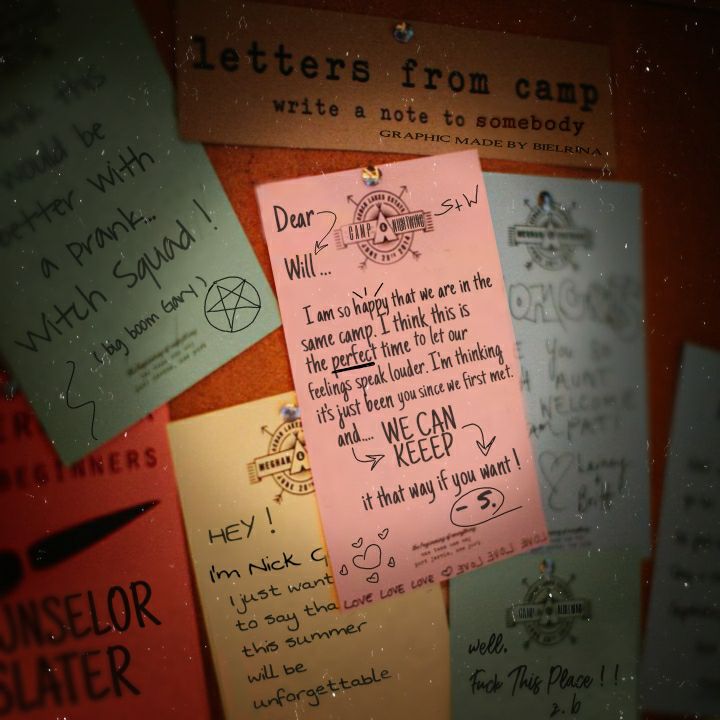 letters from camp
write a note to somebody
GRAPHIC MADE BY BIELRINA
this
would be
better with
a prank...
Witch Squad !
( big boom Gary )
S+W
CAMP NIGHTWING
Dear
Will ...
I am so happy that we are in the
same camp. I think this is
the perfect time to let our
feelings speak louder. I'm thinking
it's just been you since we first met.
and.... WE CAN
KEEEP
it that way if you want !
- S.
the beginning of everything
LOVE LOVE LOVE LOVE LOVE LOVE
AUNT
WELCOME
BEGINNERS
UNSELOR
SLATER
MEGHAN
HEY !
I'm Nick G
I just want
to say tha
this summer
will be
unforgettable
well,
Fuck This Place ! !
z. b